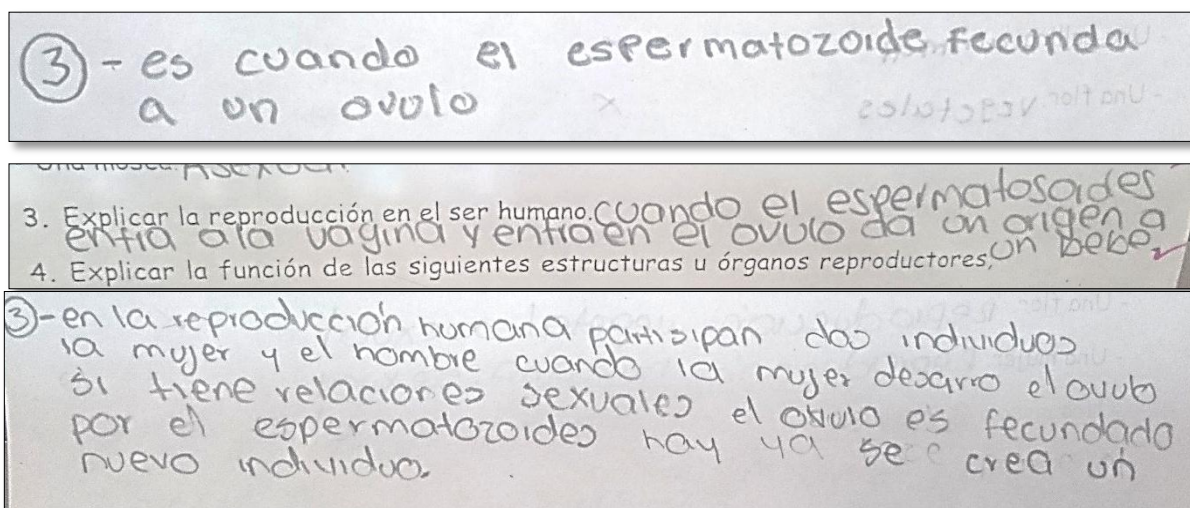 3 - es cuando el espermatozoide fecunda
a un ovulo
Una mosca: Asexual.
3. Explicar la reproducción en el ser humano. cuando el espermatosaides
entra ala vagina y entra en el ovulo da un origen a
un bebe
4. Explicar la función de las siguientes estructuras u órganos reproductores,
3 - en la reproducción humana partisipan dos individuos
la mujer y el hombre cuando la mujer desarro el ovulo
si tiene relaciones sexuales el ovulo es fecundado
por el espermatozoides hay ya se crea un
nuevo individuo.